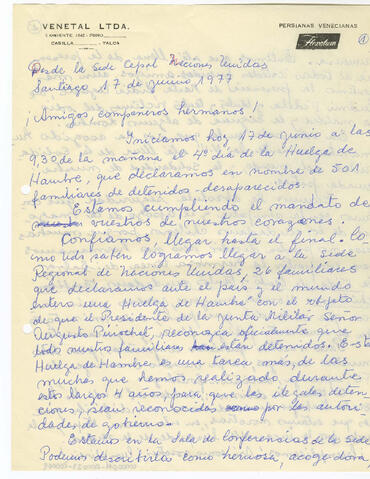 VENETAL LTDA.
PERSIANAS VENECIANAS
CASILLA TALCA
Flexalum
Desde la Sede Cepal Naciones Unidas
Santiago 17 de junio 1977
¡Amigos, compeñeros hermanos!
Iniciamos hoy 17 de junio a las
9,30 de la mañana el 4º dia de la Huelga de
Hambre, que declaramos en nombre de 501
familiares de detenidos-desaparecidos.
Estamos cumpliendo el mandato de
vuestros de nuestros corazones.
Confiamos, llegar hasta el final. Co
mo uds saben logramos llegar a la Sede
Regional de Naciones Unidas, 26 familiares
que declaramos ante el país y el mundo
entero una "Huelga de Hambre" con el objeto
de que el Presidente de la Junta Militar Señor
Augusto Pinochet, reconozca oficialmente que
todos nuestros familiares están detenidos. Esta
Huelga de Hambre es una tarea más, de las
muchas que hemos realizado durante
estos largos 4 años, para que las ilegales deten-
ciones, sean reconocidas por las autori
dades de gobierno.
Estamos en la Sala de Conferencias de la Sede
Podemos describirla como hermosa, acogedora,